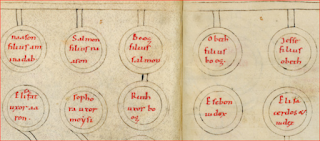 naason
filius am
inadab
Salmon
filius na
ason
Booz
filius
salmon
Obeth
filius
booz
Jesse
filius
obeth
Elisa
uxor aa
ron
Sepho
ra uxor
moysi
Ruth
uxor bo
oz
Esebon
iudex